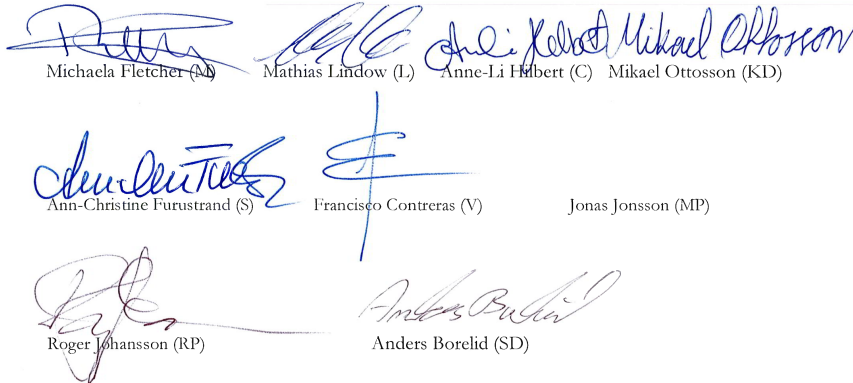 Mikael Ottosson
Michaela Fletcher (M) Mathias Lindow (L) Anne-Li Hilbert (C) Mikael Ottosson (KD)
Ann-Christine Furustrand (S) Francisco Contreras (V) Jonas Jonsson (MP)
Anders Borelid
Roger Johansson (RP) Anders Borelid (SD)